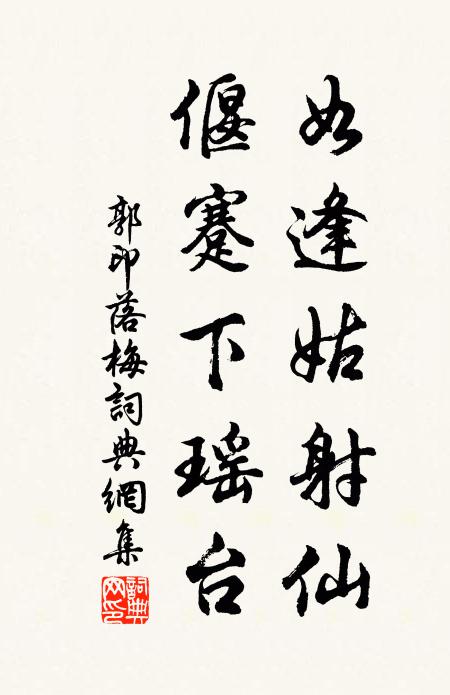 如逢姑射仙
偃蹇下瑶台
郭印落梅詞典網集
詞典網印